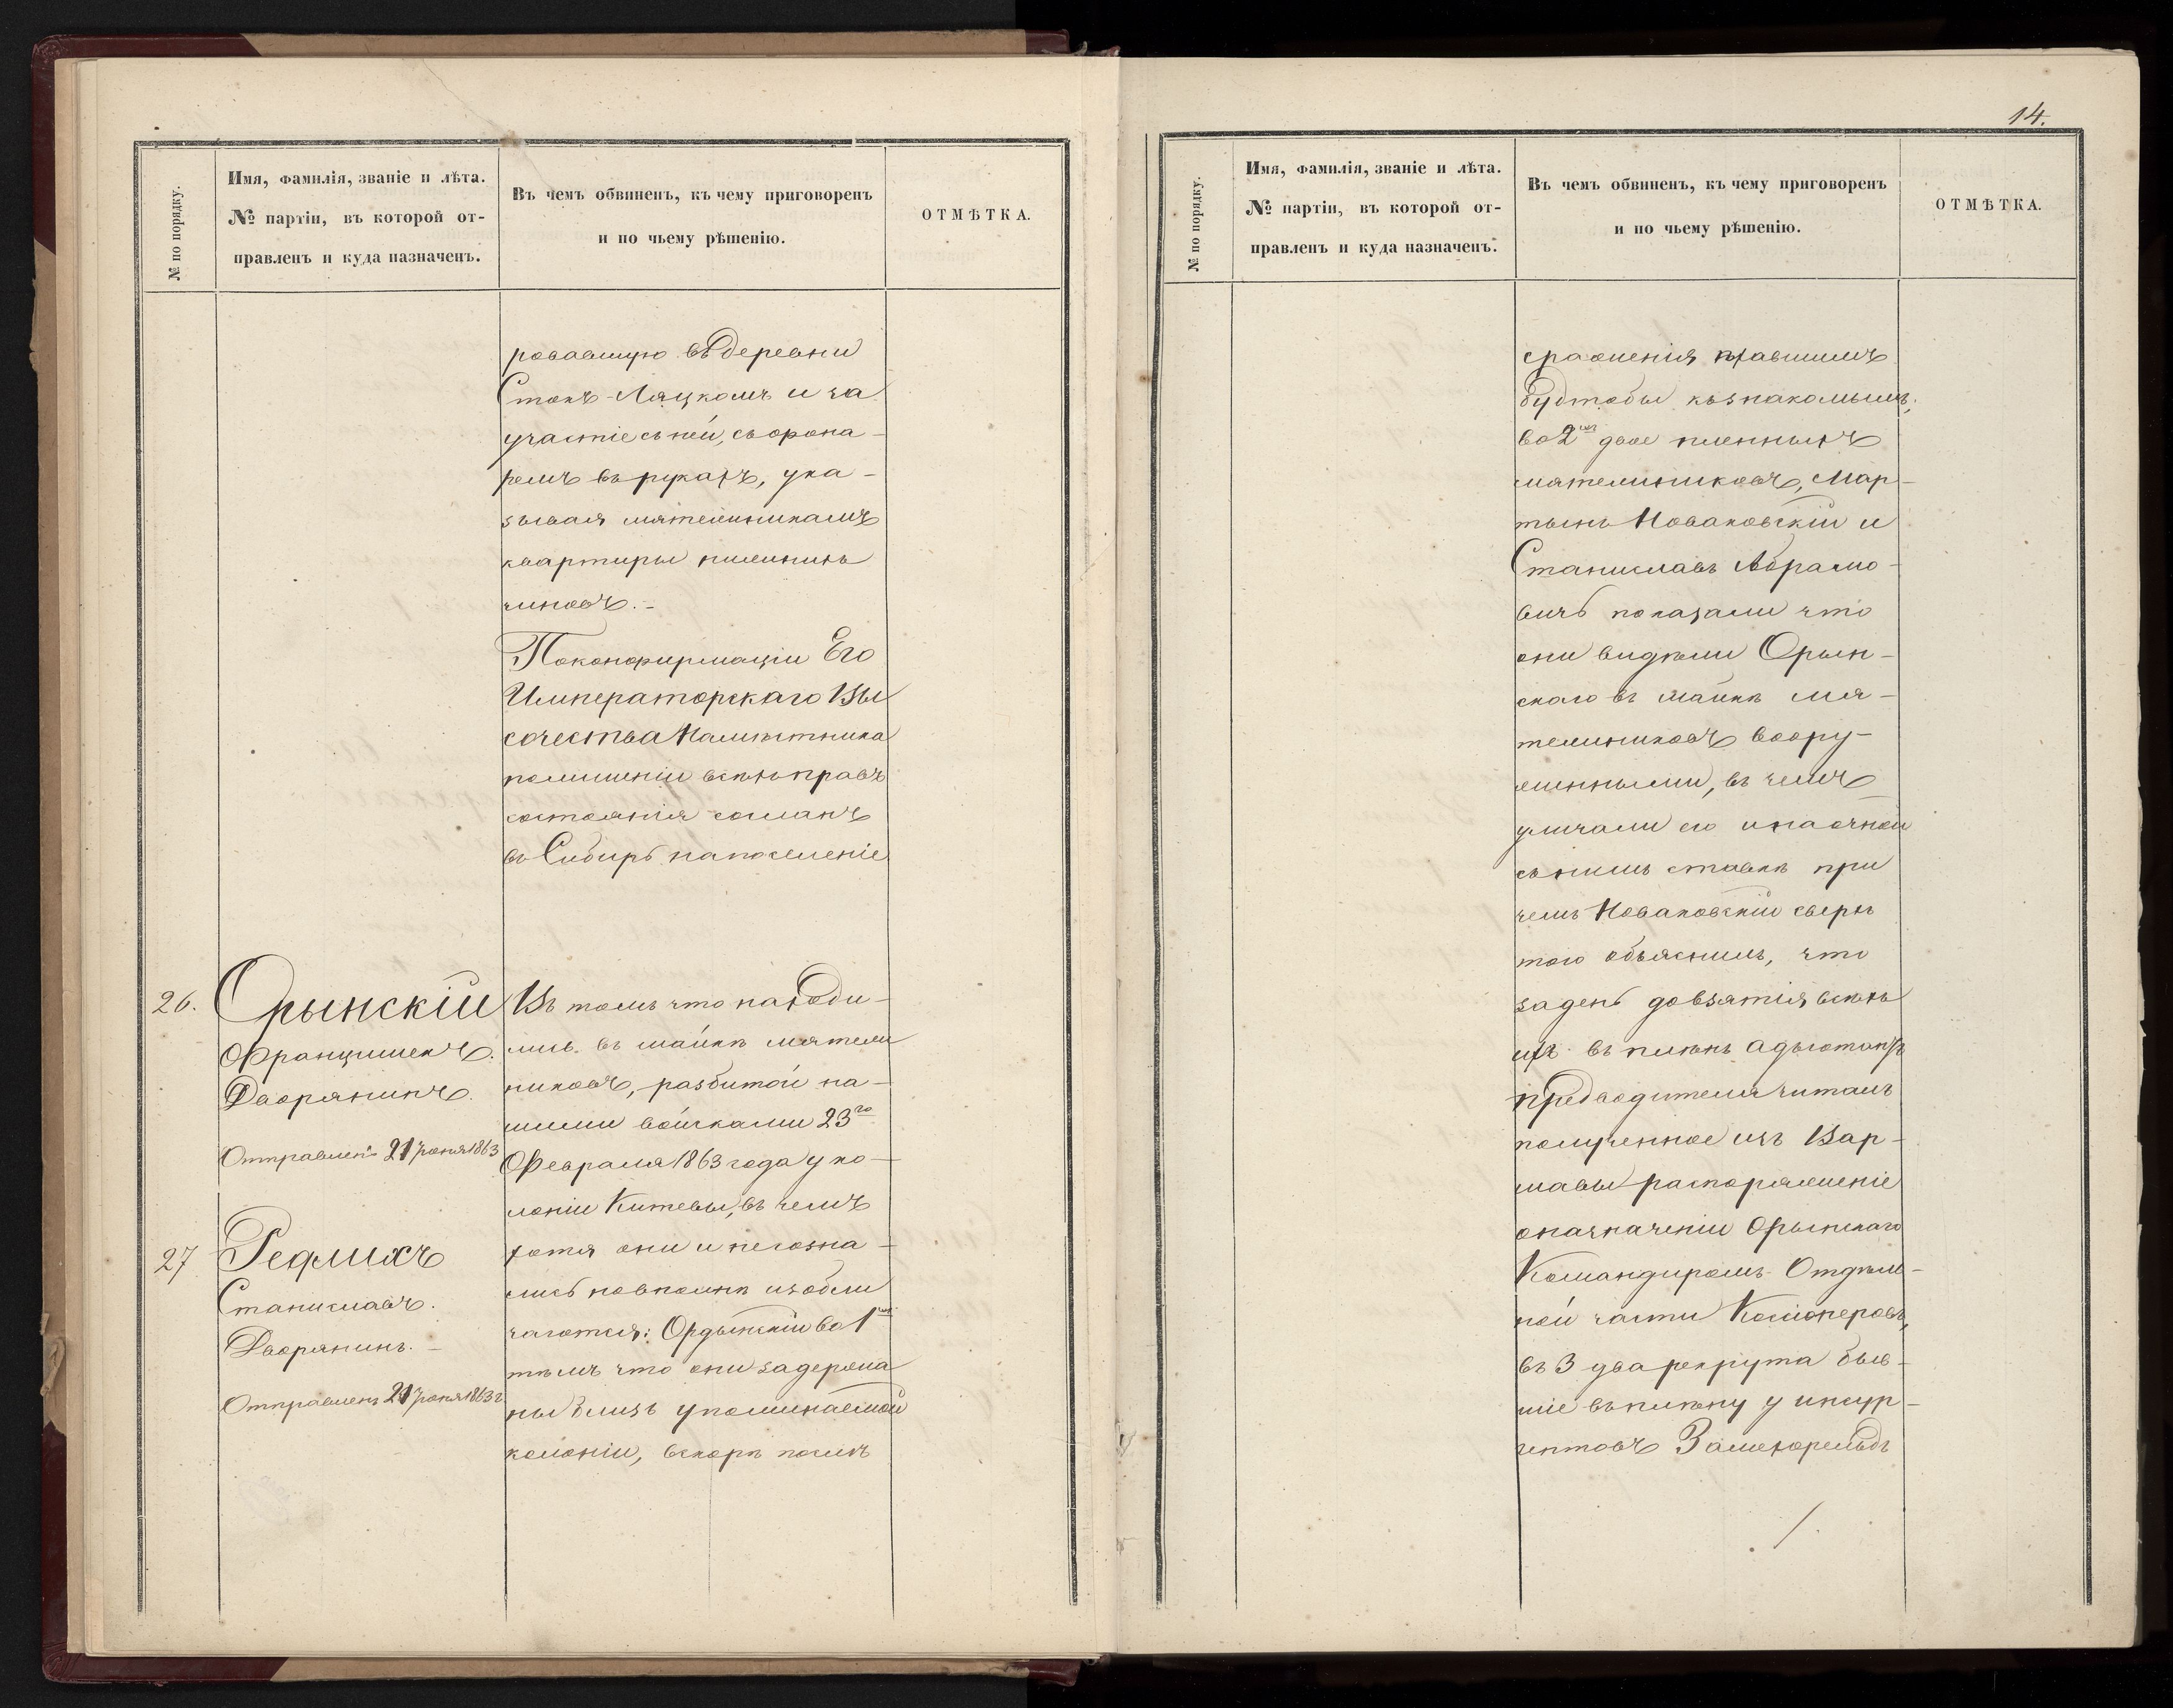 № по порядку.
Имя, фамилія, званіе и лѣта.
№ партіи, въ которой от-
правленъ и куда назначенъ.
Въ чемъ обвиненъ, къ чему приговоренъ
и по чьему рѣшенію.
ОТМѢТКА.
ровавшую въ деревни
Стокъ-Ляцкомъ и за
участіе съ ней, съ фона-
ремъ въ рукахъ, ука-
зывая мятежникамъ
квартиры нижнихъ
чиновъ.-
По конфирмаціи Его
Императорскаго Вы
сочества Намѣстника
по лишеніи всѣхъ правъ
состоянія сосланъ
въ Сибирь на поселеніе
26.
Орынскій
Францишекъ.
Дворянинъ.
Отправленъ 21 Іюня 1863
27
Рефлихъ
Станиславъ.
Дворянинъ.-
Отправленъ 21 Іюня 1863 г
Въ томъ что находи-
лись въ шайкѣ мятеж
никовъ, разбитой на-
шими войсками 23го
Февраля 1863 года у ко-
лоніи Китевы, въ чемъ
хотя они и несозна-
лись но вполнѣ изобли
чаются: Ордынскій во 1хъ
тѣмъ что они задержа
ны близъ упоминаемой
колоніи, вскорѣ послѣ
14.
№ по порядку.
Имя, фамилія, званіе и лѣта.
№ партіи, въ которой от-
правленъ и куда назначенъ.
Въ чемъ обвиненъ, къ чему приговоренъ
и по чьему рѣшенію.
ОТМѢТКА.
сраженія
будтобы къ знакомымъ;
во 2хъ двое пленныхъ
мятежниковъ, Мар-
тынъ Новаковскій и
Станиславъ Абрамо-
вичъ показали что
они видѣли Орын-
скаго въ шайкѣ мя-
тежниковъ воору-
женными, въ чемъ
уличали его и на очной
съ нимъ ставкѣ при
чемъ Новаковскій сверхъ
того объяснилъ, что
за день до взятія всѣхъ
ихъ въ плѣнъ адъютантъ
предводителя читалъ
полученное изъ Вар-
шавы распоряженіе
о назначеніи Орынскаго
Командиромъ Отдѣль-
ной части Косіонеровъ,
въ 3 два рекрута быв-
шіе въ плѣну у инсур-
гентовъ